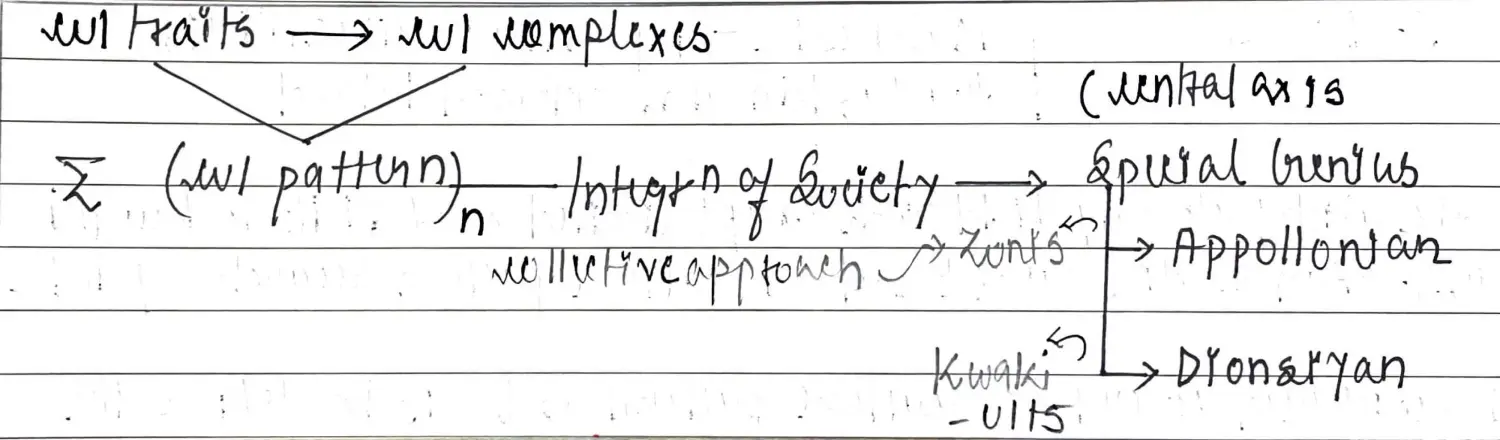 cul traits → cul complexes
(central axis
Σ (cul pattern)n — Integrn of Society → Special Genius
collective approach → Zunis ↩ → Appollonian
Kwaki ↩ → Dionsiyan
- ults